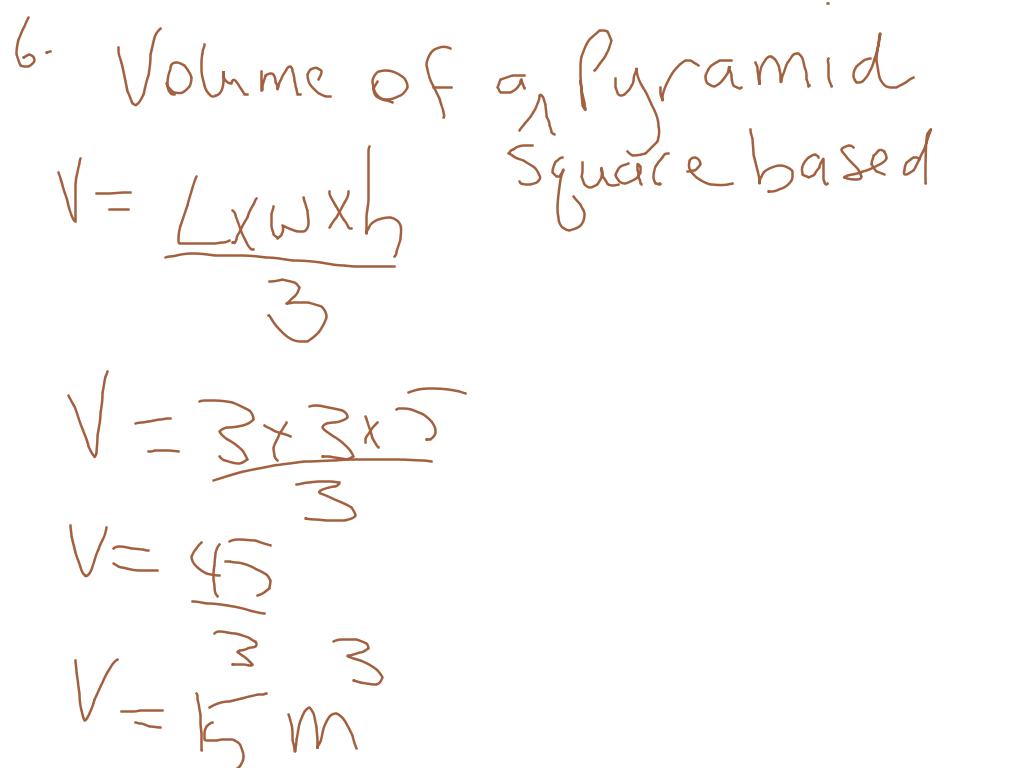 6. Volume of a ^ Pyramid
square based
V = L x w x h
3
V = 3 x 3 x 5
3
V = 45
3
V = 15 m³